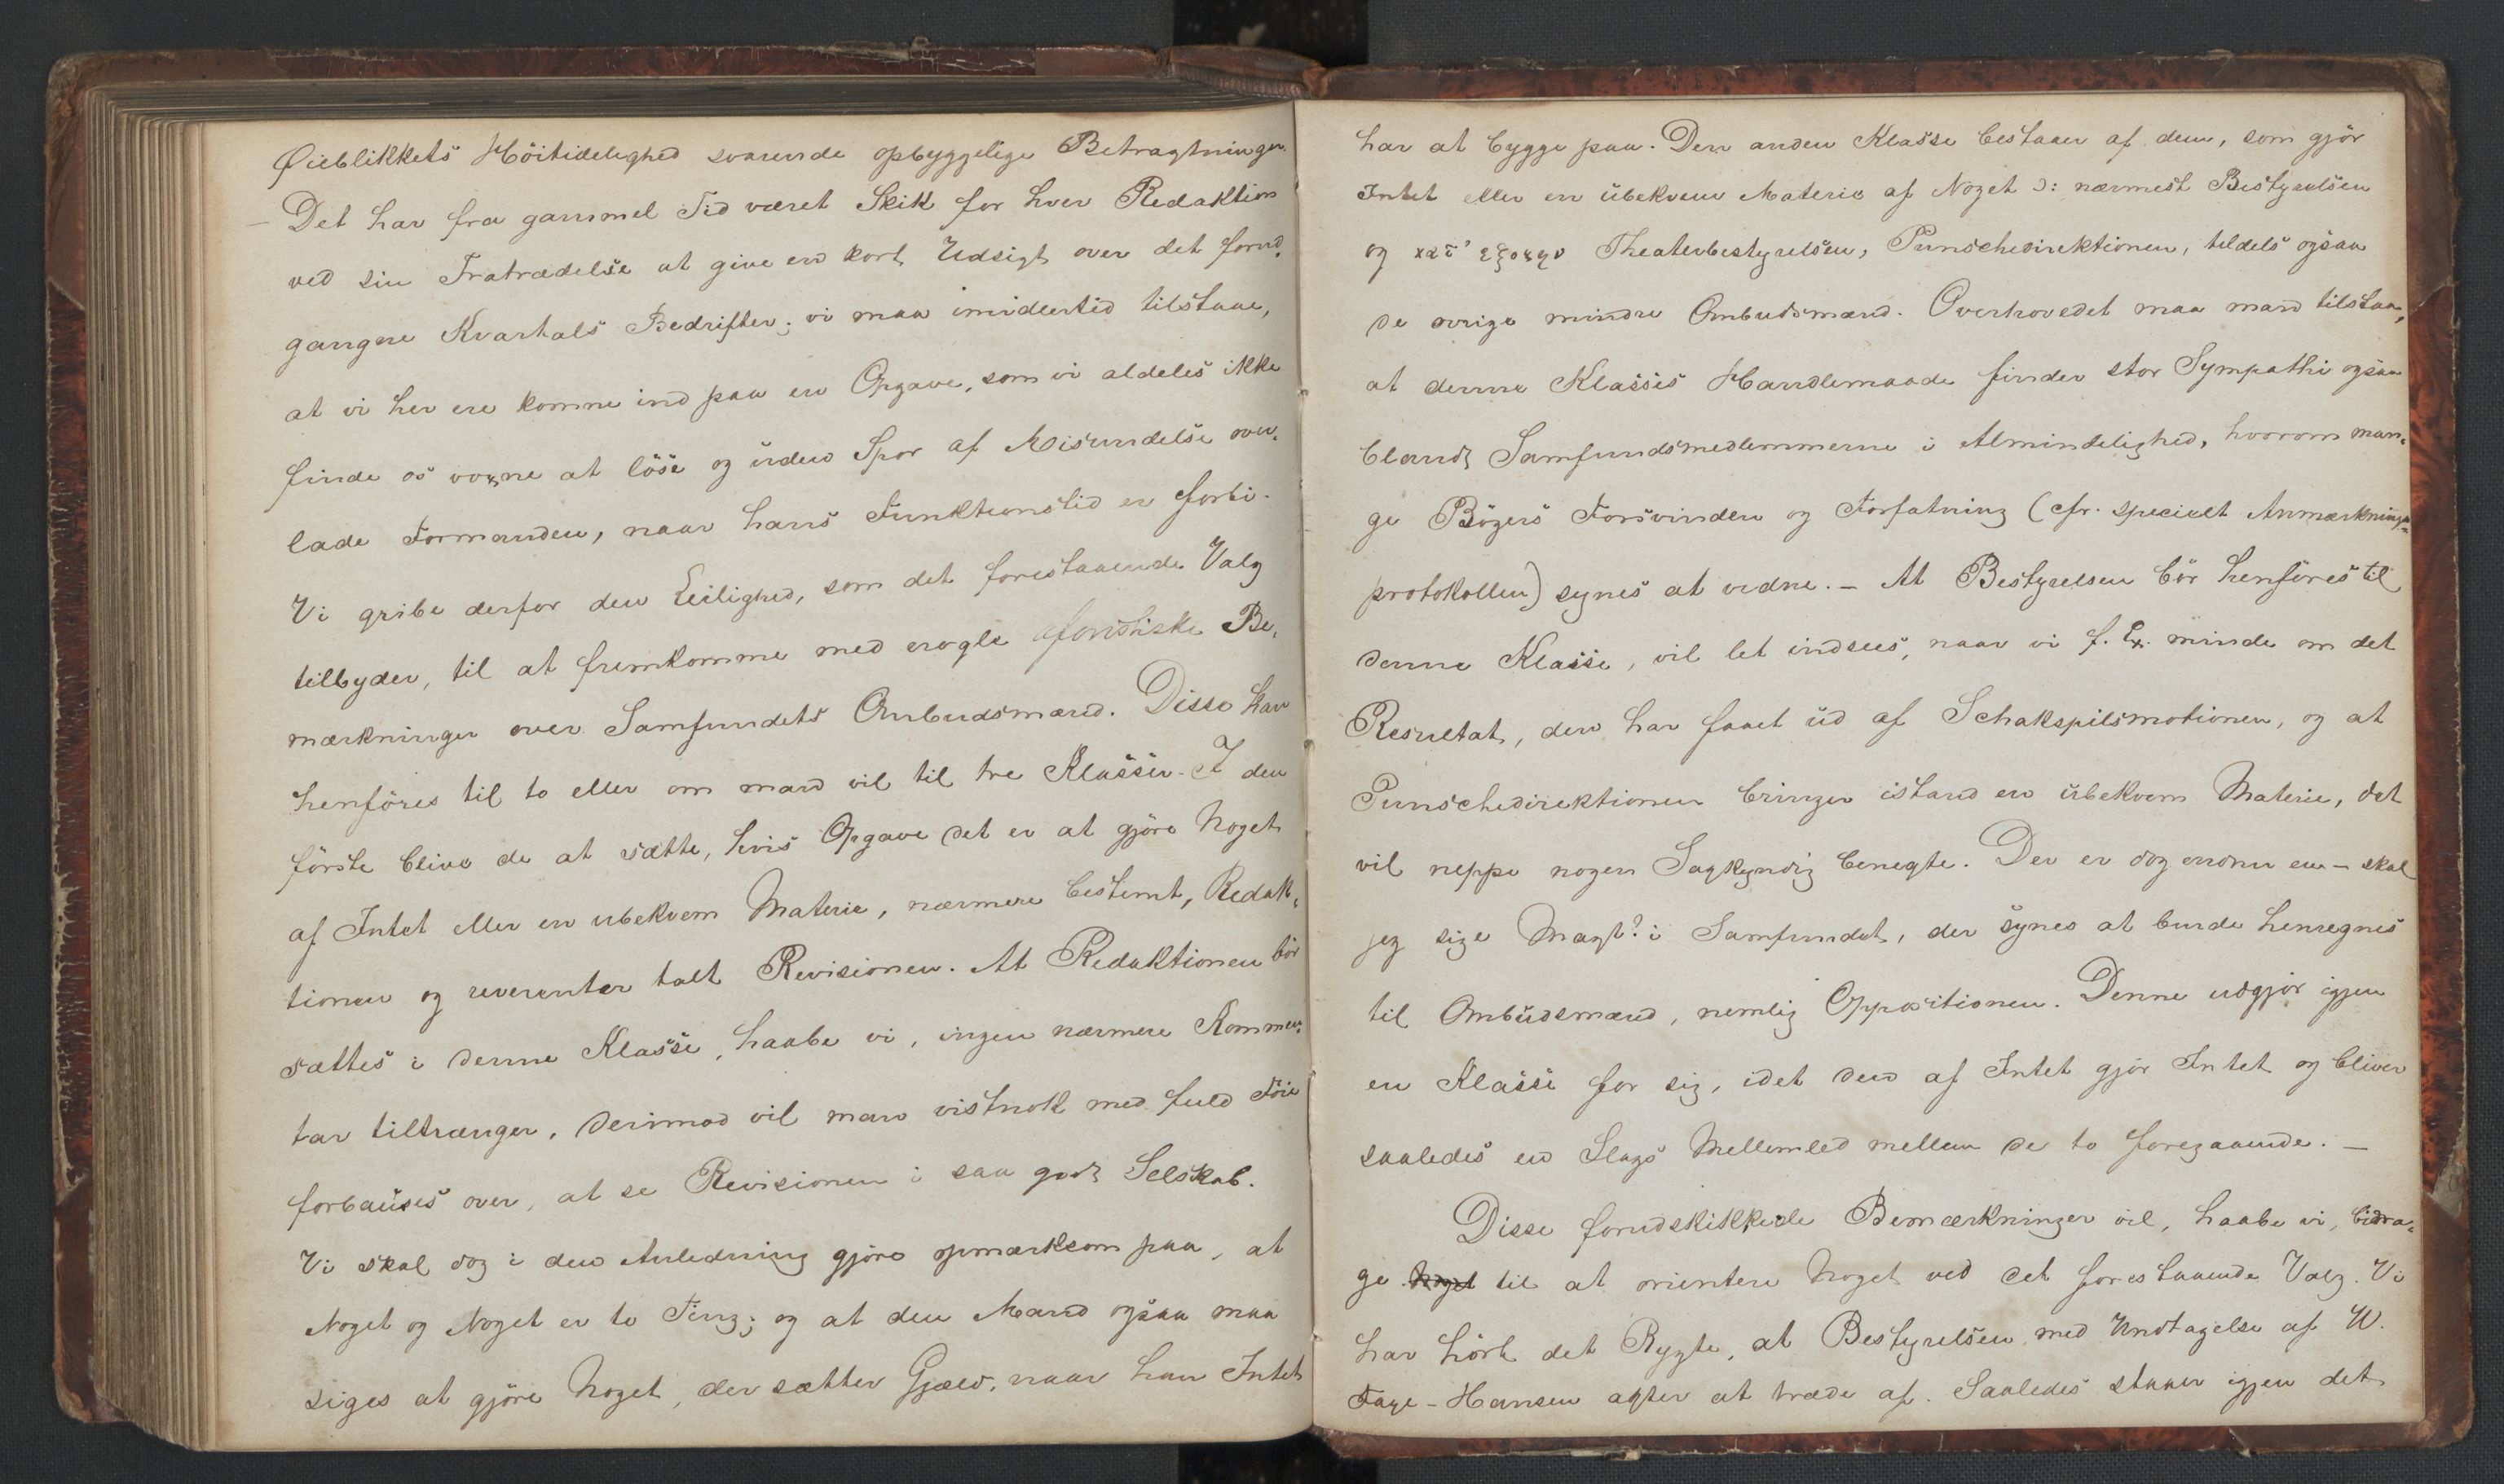 Øieblikkets Höitidelighed svarende opbyggelige Betragtninger.
— Det har fra gammel Tid været Skik for hver Redaktion
ved sin Fratrædelse at give en kort Udsigt over det forud,
gangne Kvartals Bedrifter; vi maa imidlertid tilstaae,
at vi her ere komne ind paa en Opgave, som vi aldeles ikke
finde os voxne at löse og uden Spor af Misundelse over,
lade Formanden, naar hans Funktionstid er forbi.
Vi gribe derfor den Leilighed, som det forestaaende Valg
tilbyder, til at fremkomme med nogle aforistiske Be,
mærkninger over Samfundets Ombudsmænd. Disse kan
henföres til to eller om man vil til tre Klasser. I den
förste blive de at sætte, hvis Opgave det er at gjöre Noget
af Intet eller en ubekvem Materie, nærmere bestemt, Redak,
tionen og reverenter talt Revisionen. At Redaktionen bör
sættes i denne Klasse, haabe vi, ingen nærmere Kommen,
tar tiltrænger, derimod vil man vistnok med fuld Föie
forbauses over, at se Revisionen i saa godt Selskab.
Vi skal dog i den Anledning gjöre opmærksom paa, at
Noget og Noget er to Ting; og at den Mand ogsaa maa
siges at gjöre Noget, der sætter Gjæld, naar han Intet
har at bygge paa. Den anden Klasse bestaaer af dem, som gjör
Intet eller en ubekvem Materie af Noget ɔ: nærmest Bestyrelsen
og κατ' εξοχην Theaterbestyrelsen, Punschedirektionen, tildels ogsaa
de övrige mindre Ombudsmænd. Overhovedet maa man tilstaa,
at denne Klasses Handlemaade finder stor Sympathi ogsaa
blandt Samfundsmedlemmerne i Almindelighed, hvorom man,
ge Bögers Forsvinden og Forfatning (cfr. specielt Anmærknings-
protokollen) synes at vidne. — At Bestyrelsen bör henföres til
denne Klasse, vil let indsees, naar vi f. Ex. minde om det
Resultat, den har faaet ud af Schakspilsmotionen, og at
Punschedirektionen bringer istand en ubekvem Materie, det
vil neppe nogen Sagkyndig benegte. Der er dog endnu en — skal
jeg sige Magt? i Samfundet, der synes at burde henregnes
til Ombudsmænd, nemlig Oppositionen. Denne udgjör igjen
en Klasse for sig, idet den af Intet gjör Intet og bliver
saaledes en Slags Mellemled mellem de to foregaaende. —
Disse forudskikkede Bemærkninger vil, haabe vi, bidra,
ge Noget til at orientere Noget ved det forestaaende Valg. Vi
har hört det Rygte, at Bestyrelsen med Undtagelse af W.
Faye-Hansen agter at træde af. Saaledes staaer igjen det